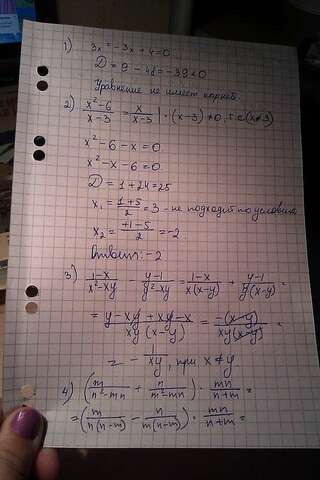 1) 3x² - 3x + 4 = 0
D = 9 - 48 = -39 < 0
Уравнение не имеет корней.
2) x²-6/x-3 = x/x-3 | · (x-3) ≠ 0, т.е. (x ≠ 3)
x² - 6 - x = 0
x² - x - 6 = 0
D = 1 + 24 = 25
x₁ = 1+5/2 = 3 - не подходит по условию
x₂ = +1-5/2 = -2
Ответ: -2
3) 1-x/x²-xy - y-1/y²-xy = 1-x/x(x-y) + y-1/y(x-y) =
= y-xy+xy-x/xy(x-y) = -(x-y)/xy(x-y) =
= - /xy, при x ≠ y.
4) (m/n²-mn + n/m²-mn) · mn/n+m =
= (m/n(n-m) - n/m(n-m)) · mn/n+m =